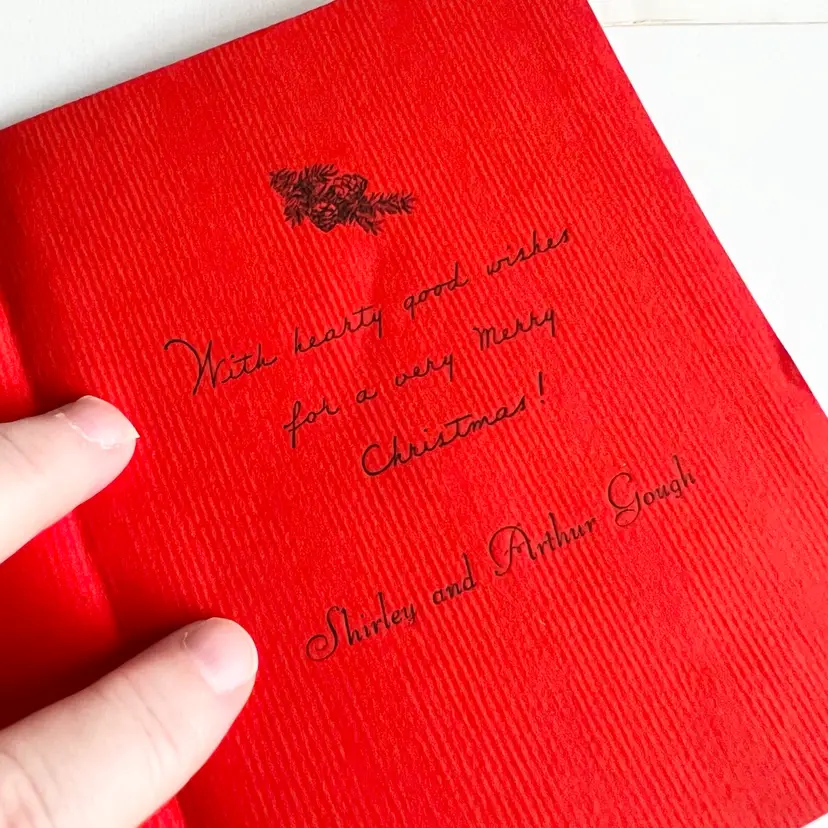 With hearty good wishes
for a very Merry
Christmas!
Shirley and Arthur Gough